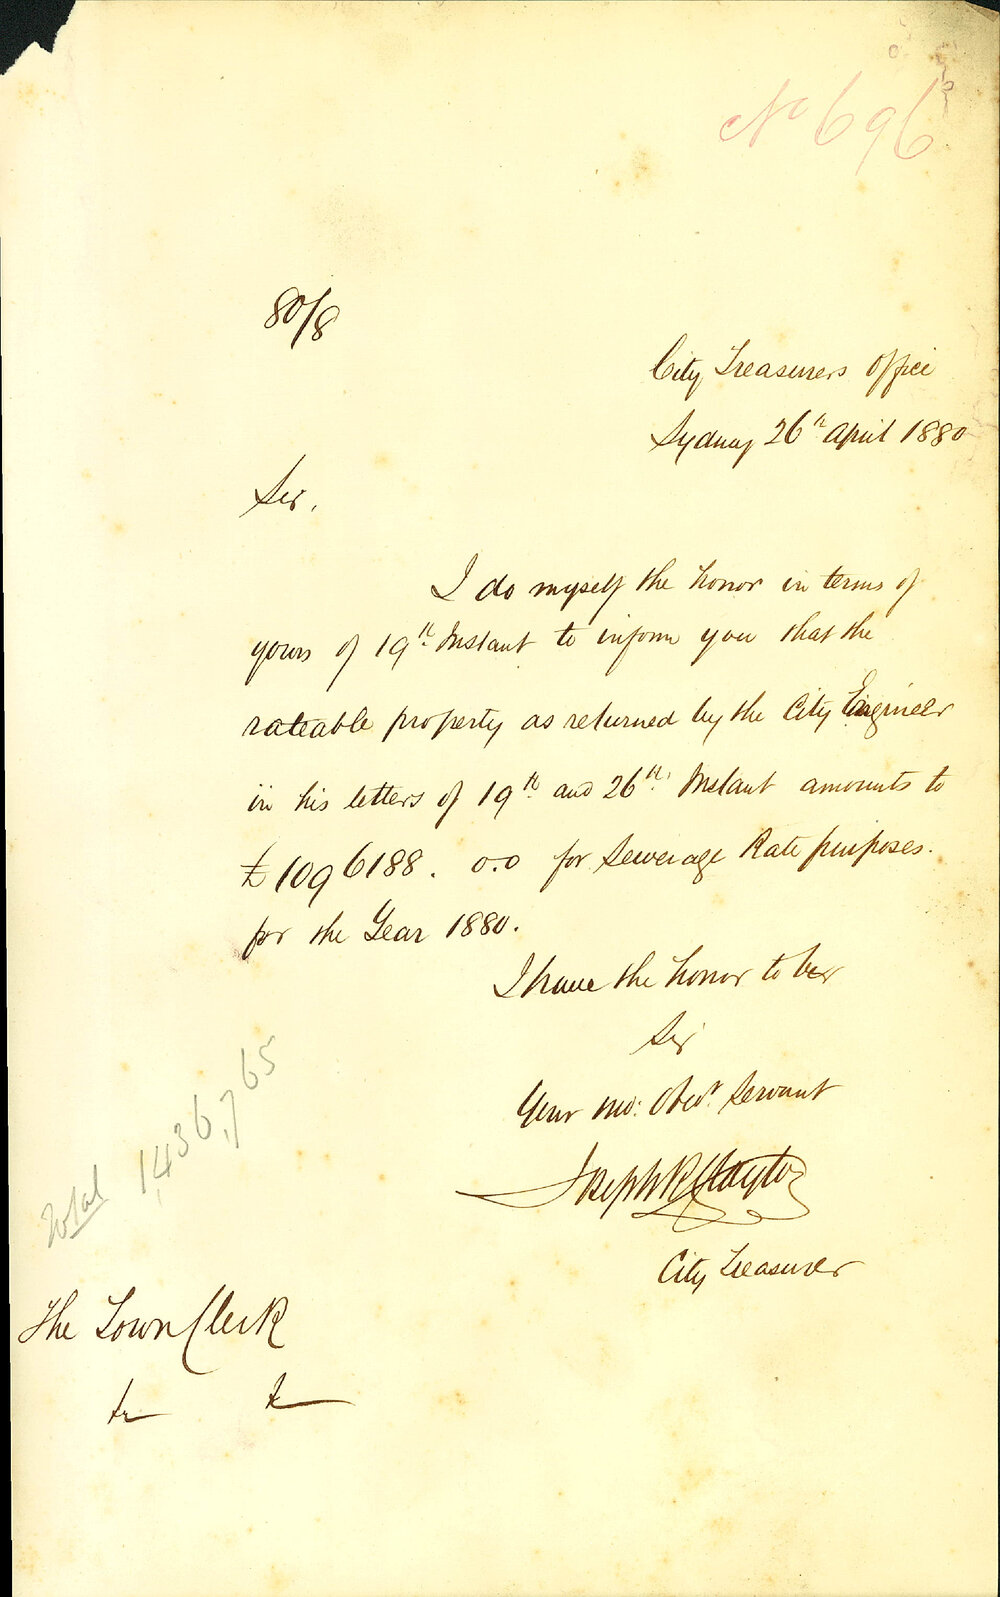 No 696
80/8
City Treasurers Office
Sydney 26th April 1880
Sir,
I do myself the honor in terms of
yours of 19th Instant to inform you that the
rateable property as returned by the City Engineer
in his letters of 19th and 26th Instant amounts to
£1096188. 0.0 for Sewerage Rate purposes.
for the Year 1880.
I have the honor to be
Sir
Your mo: Obedt Servant
Joseph R Clayton
City Treasurer
Total 1,436,765
The Town Clerk